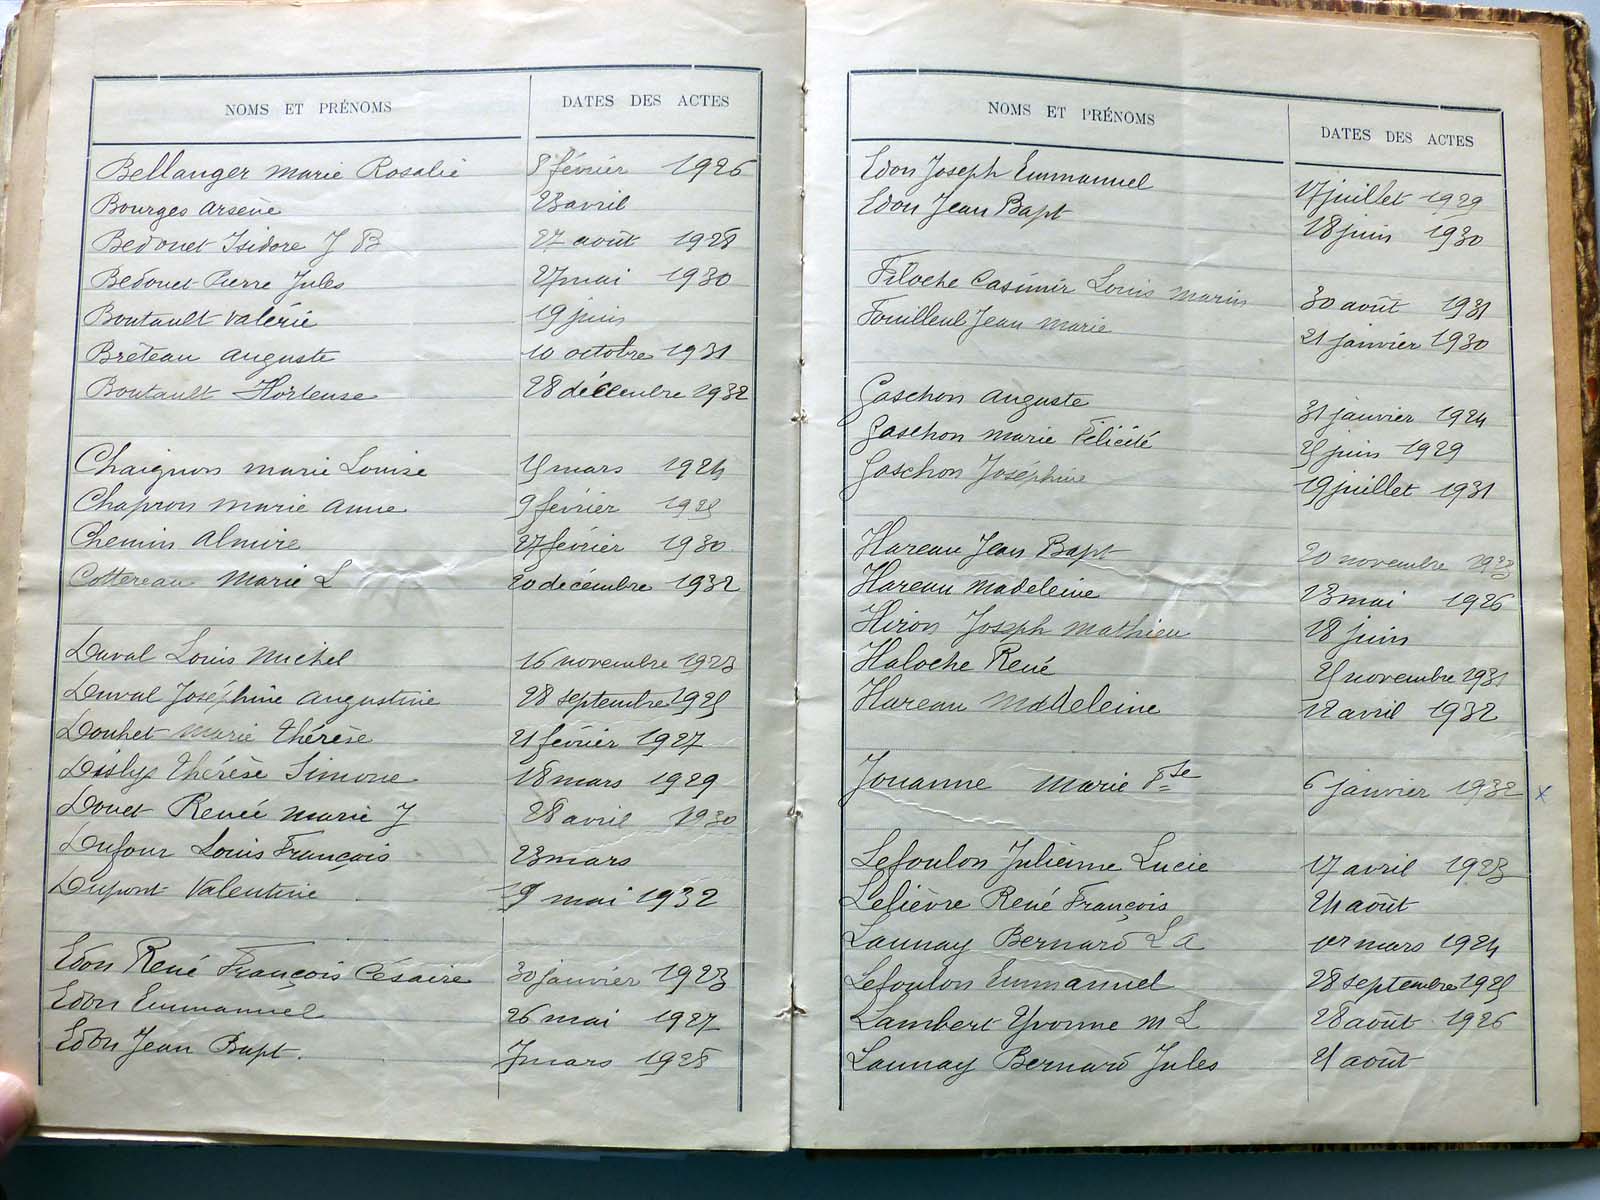 NOMS ET PRÉNOMS DATES DES ACTES
Bellanger Marie Rosalie 8 février 1926
Bourges Arsène 23 avril
Bedouet Isidore J B 27 août 1928
Bedouet Pierre Jules 27 mai 1930
Boutault Valérie 19 juin
Bréteau Auguste 10 octobre 1931
Boutault Hortense 28 décembre 1932
Chaignon Marie Louise mars 1924
Chapron Marie Anne 9 février 1925
Chemin Almire 27 février 1930
Cottereau Marie L 20 décembre 1932
Duval Louis Michel 16 novembre 1923
Duval Joséphine Augustine 28 septembre 1925
Douhet Marie Thérèse 21 février 1927
Thérèse Simone 18 mars 1929
Douet Renée Marie J 28 avril 1930
Dufour Louis François 23 mars
Dupont Valentine 19 mai 1932
Edon René François Césaire 30 janvier 1923
Edon Emmanuel 26 mai 1927
Edon Jean Bapt. 7 mars 1928
NOMS ET PRÉNOMS DATES DES ACTES
Edon Joseph Emmanuel 17 juillet 1929
Edon Jean Bapt 28 juin 1930
Filoche Casimir Louis Marin 30 août 1931
Fouilleul Jean Marie 21 janvier 1930
Gaschon Auguste 31 janvier 1924
Gaschon Marie Félicité juin 1929
Gaschon Joséphine 19 juillet 1931
Hareau Jean Bapt 20 novembre 1923
Hareau Madeleine 23 mai 1926
Hiron Joseph Mathieu 28 juin
Haloche René novembre 1931
Hareau Madeleine 12 avril 1932
Jouanne Marie 6 janvier 1932 x
Lefoulon Julienne Lucie 17 avril 1923
Lelièvre René François 24 août
Launay Bernard L A 1er mars 1924
Lefoulon Emmanuel 28 septembre 1925
Lambert Yvonne M L 28 août 1926
Launay Bernard Jules 21 août